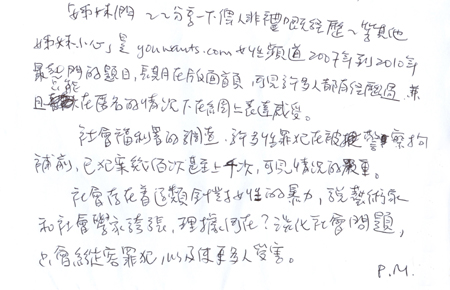 姊妹們～～分享一下俾人非禮嘅經歷～等其他
姊妹小心」是youwants.com女性頻道2007年到2010年
最熱門的題目，長期在版面首頁，可見許多人都有經歷過，兼
且只能在匿名的情況下在網上表達感受。
社會福利署的調查，許多性罪犯在被警察拘
捕前，已犯案幾百次甚至上千次，可見情況的嚴重。
社會存在着這類針對女性的暴力，說藝術家
和社會學家誇張，理據何在？淡化社會問題，
只會縱容罪犯，以及使更多人受害。
P.M.